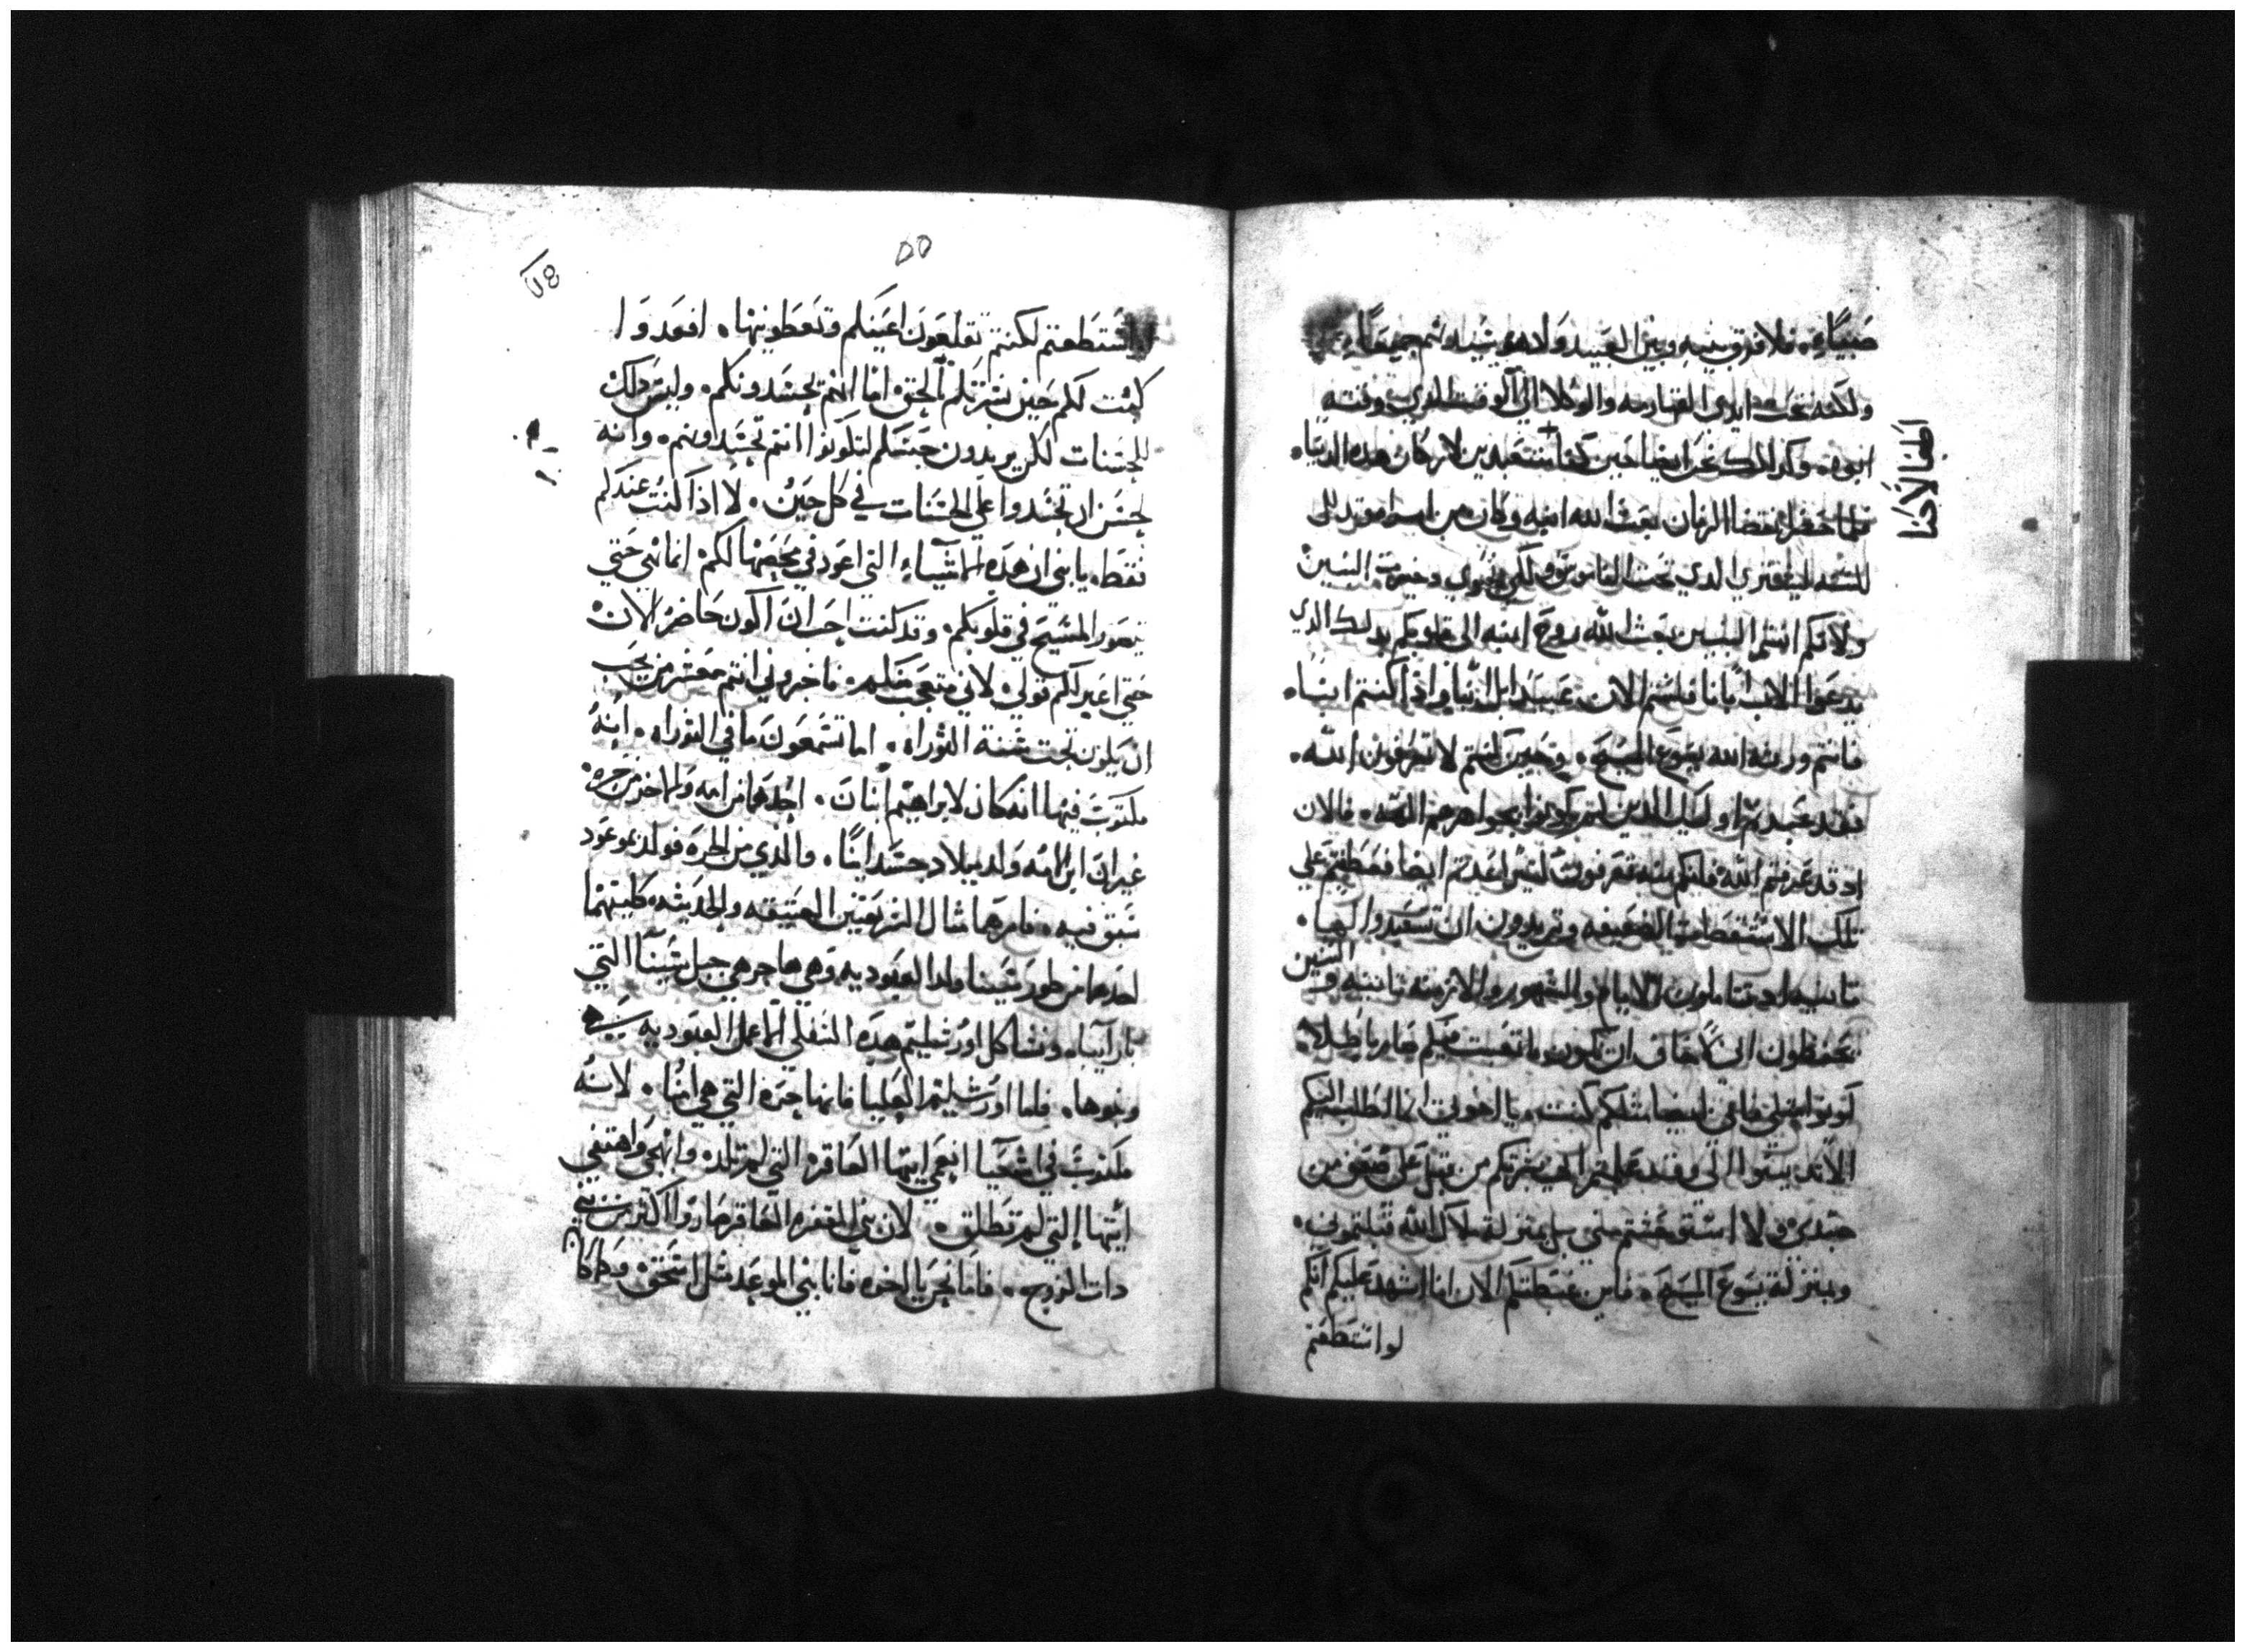 صبياً. فلا فرق بينه وبين العبيد ولانه سيدهم جميعاً.
ولكنه تحت ايدي القهارمه والوكلا الي الوقت الذي وقته
ابوه. وكدالك نحن ايضا حين كنا متعبدين لاركان هذه الدنيا.
اطفالا كنا
فلما حضر انقضا الزمان بعث الله ابنه وكان من امراه
للسنه ليفتري الدي تحت الناموس ولكي دخيرت البنين
ولانكم انتم البنين بعث الله روح ابنه الي قلوبكم بدلك الدي
يدعوا الاب ابانا فلستم الان عبيدا بل ابنا واذا كنتم ابنا.
فانتم ورثه الله بيسوع المسيح. وحين كنتم لا تعرفون الله.
فقد عبدتم اوليك الذين لم يكونوا بجواهرهم الهه. فالان
اد قد عرفتم الله فلنكم منه تعرفون ايضا فعطفتم علي
تلك الاستقصات الضعيفه وتريدون ان تتعبدوا لها.
تانيه اد تتاملون الايام والشهور والازمنه تانيه والسنين
تحفظون اني لاخاف ان يكون ما تعبت فيكم صار باطلا.
كونوا متلي فاني ايضا متلكم كنت. يا اخوتي انا اطلب اليكم
الا تدنبوا الي وقد علمتم اني بشرتكم من قبل علي ضعف من
جسدي ولا مني بل بمنزله ملاك الله قبلتموني.
وبمنزلة يسوع المسيح. فاين غبطتكم الان انا اشهد عليكم انكم
لو استطعتم
٥٥
لو استطعتم لكنتم تقلعون اعينكم وتعطونيها. افعدوا
كنت لكم حين بشرتكم بالحق اما انهم يحسدونكم. وليس دلك
للحسنات لكن يريدون حبسكم لتكونوا انتم تحسدونهم. وانه
لحسن ان تحسدوا علي الحسنات في كل حين. لا اذا كنت عندكم
فقط. يا بني ان هذه الاشياء التي اعود في مخضها لكم انما هي حتي
يتصور المسيح في قلوبكم. وقد كنت احب ان اكون حاضر الان
حتي اغير لكم قولي. لاني متعجب منكم. فاخبروني انتم معشر من يحب
ان يكون تحت سنة التوراه. اما تسمعون ما في التوراه. انه
مكتوب فيها انه كان لابراهيم ابنان. احدهما من امه والاخر من حره
غير ان ابن الامه ولد ميلاد جسدانيا. والذي من الحره فولد بموعود
سبق فيه. فامرهما مثال الشريعتين العتيقه والحديثه. كلتيهما
احدهما من طور سينا ولدا لعبوديه وهي هاجر هي جبل سينا التي
بارآبيا. وتشاكل اورشليم هذه السفلي لما عمل العبوديه هي
وبنوها. فاما اورشليم العليا فانها حره التي هي امنا. لانه
مكتوب في اشعيا انعمي ايتها العاقره التي لم تلد. وابهجي واهتفي
ايتها التي لم تطلق. لان بني المقفره العاقر صاروا اكثر من بني
دات الزوج. فاما نحن يا اخوه فانا بني الموعد مثل اسحق. وكما كان